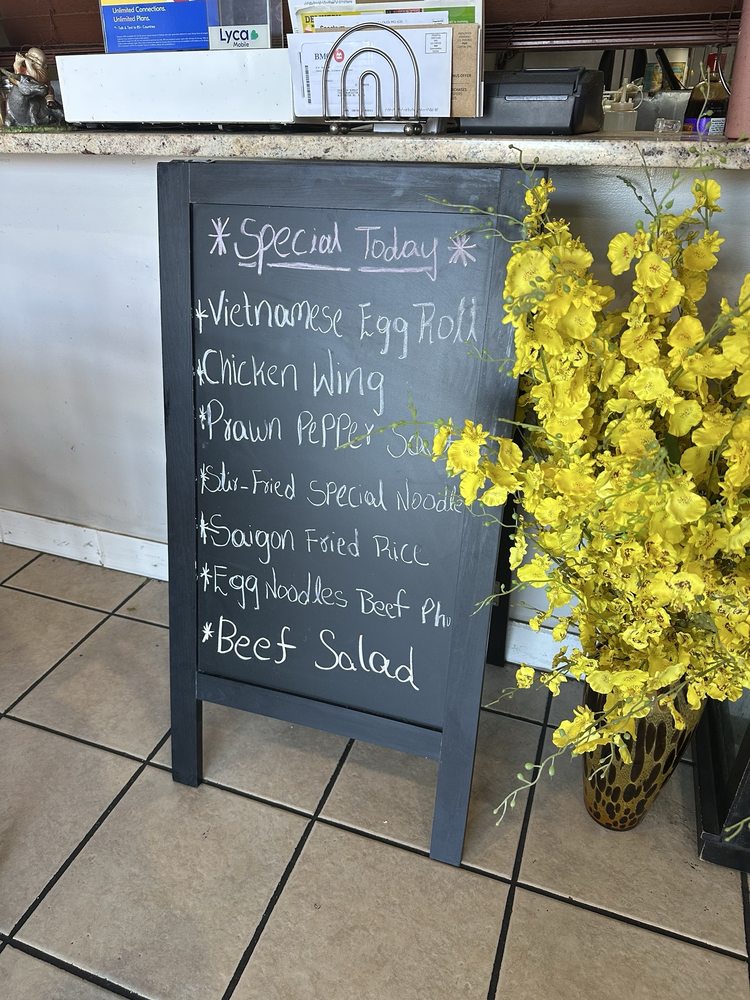 Unlimited Connections.
Unlimited Plans.
Lyca
Mobile
*Special Today*
*Vietnamese Egg Roll
*Chicken Wing
*Prawn PePPer
*Stir-Fried Special Noodle
*Saigon Fried Rice
*Egg Noodles Beef Pho
*Beef Salad